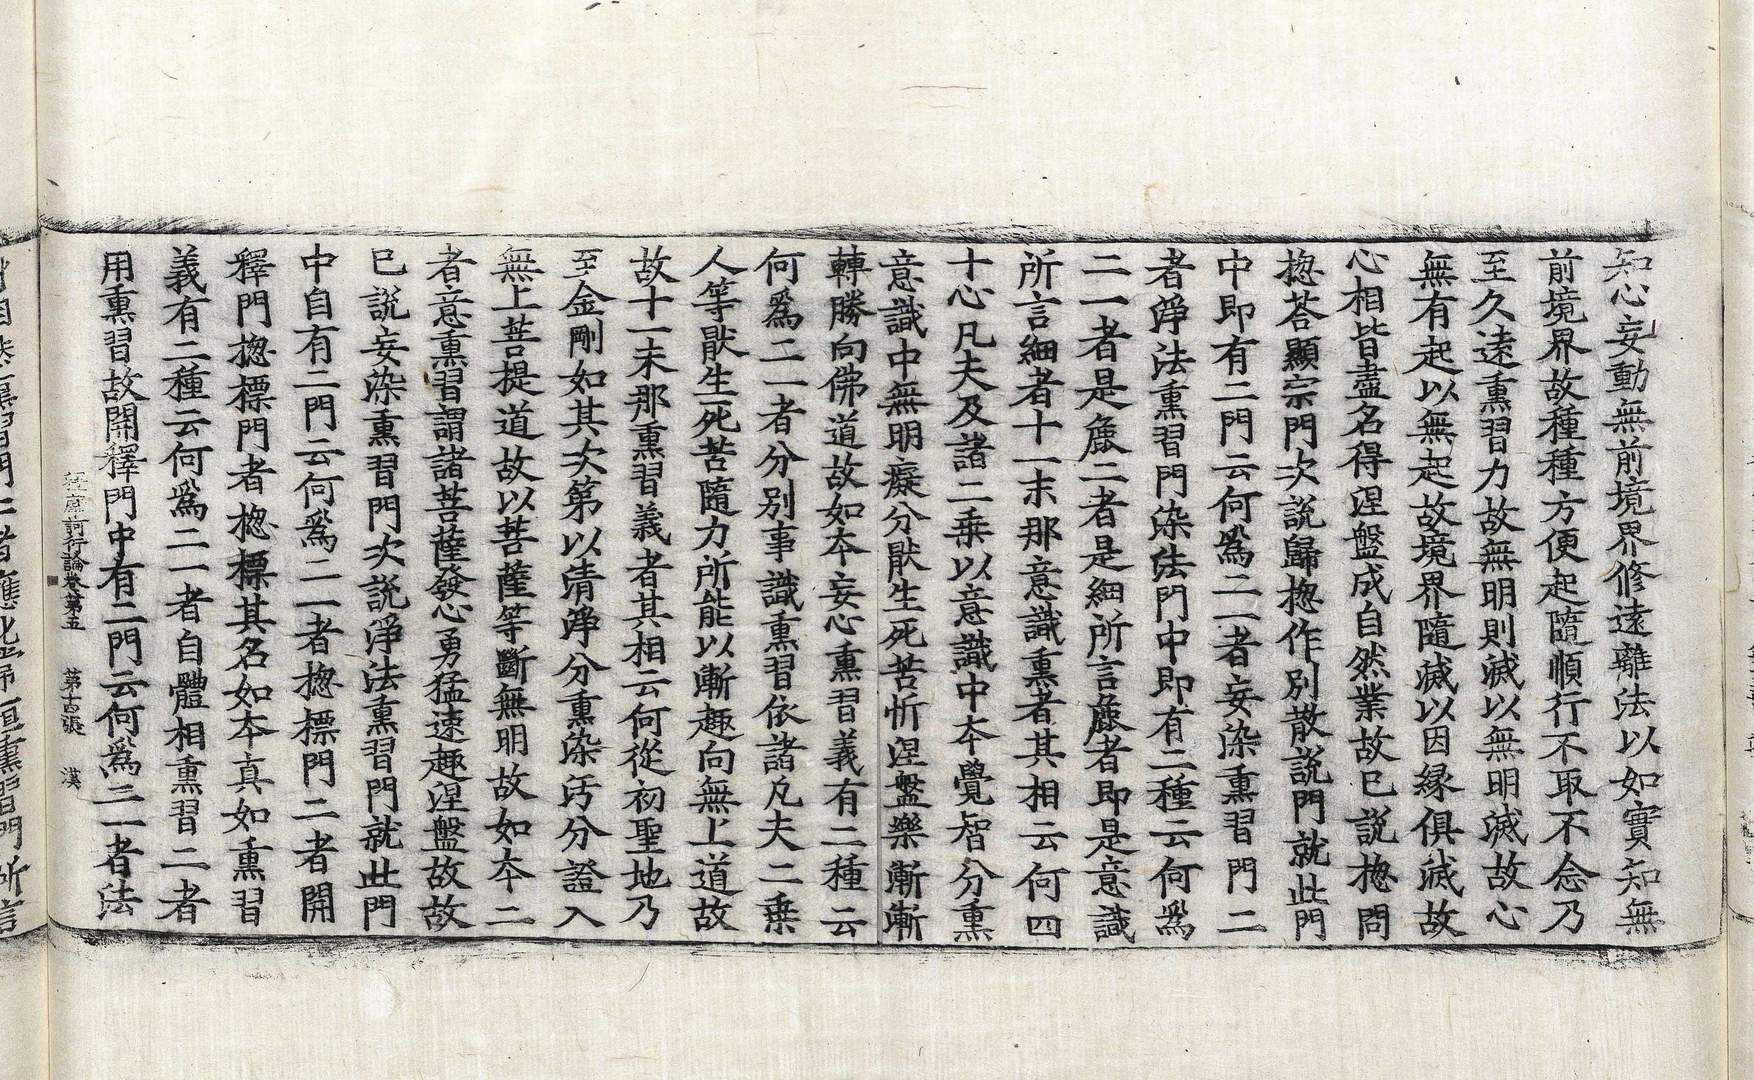 知心妄動無前境界修遠離法以如實知無
前境界故種種方便起隨順行不取不念乃
至久遠熏習力故無明則滅以無明滅故心
無有起以無起故境界隨滅以因緣俱滅故
心相皆盡名得涅盤成自然業故已說揔問
揔荅顯宗門次說歸揔作別散說門就此門
中即有二門云何爲二一者妄染熏習門二
者淨法熏習門染法門中即有二種云何爲
二一者是麁二者是細所言麁者即是意識
所言細者十一末那意識熏者其相云何四
十心凡夫及諸二乗以意識中本覺智分熏
意識中無明癡分猒生死苦忻涅盤樂漸漸
轉勝向佛道故如本妄心熏習義有二種云
何爲二一者分別事識熏習依諸凡夫二乗
人等猒生死苦隨力所能以漸趣向無上道故
故十一末那熏習義者其相云何從初聖地乃
至金剛如其次第以清淨分熏染污分證入
無上菩提道故以菩薩等斷無明故如本二
者意熏習謂諸菩薩發心勇猛速趣涅盤故故
已說妄染熏習門次說淨法熏習門就此門
中自有二門云何爲二一者揔標門二者開
釋門揔標門者揔標其名如本真如熏習
義有二種云何爲二一者自體相熏習二者
用熏習故開釋門中有二門云何爲二一者法
釋摩訶衍論卷第五 第十古張 漢